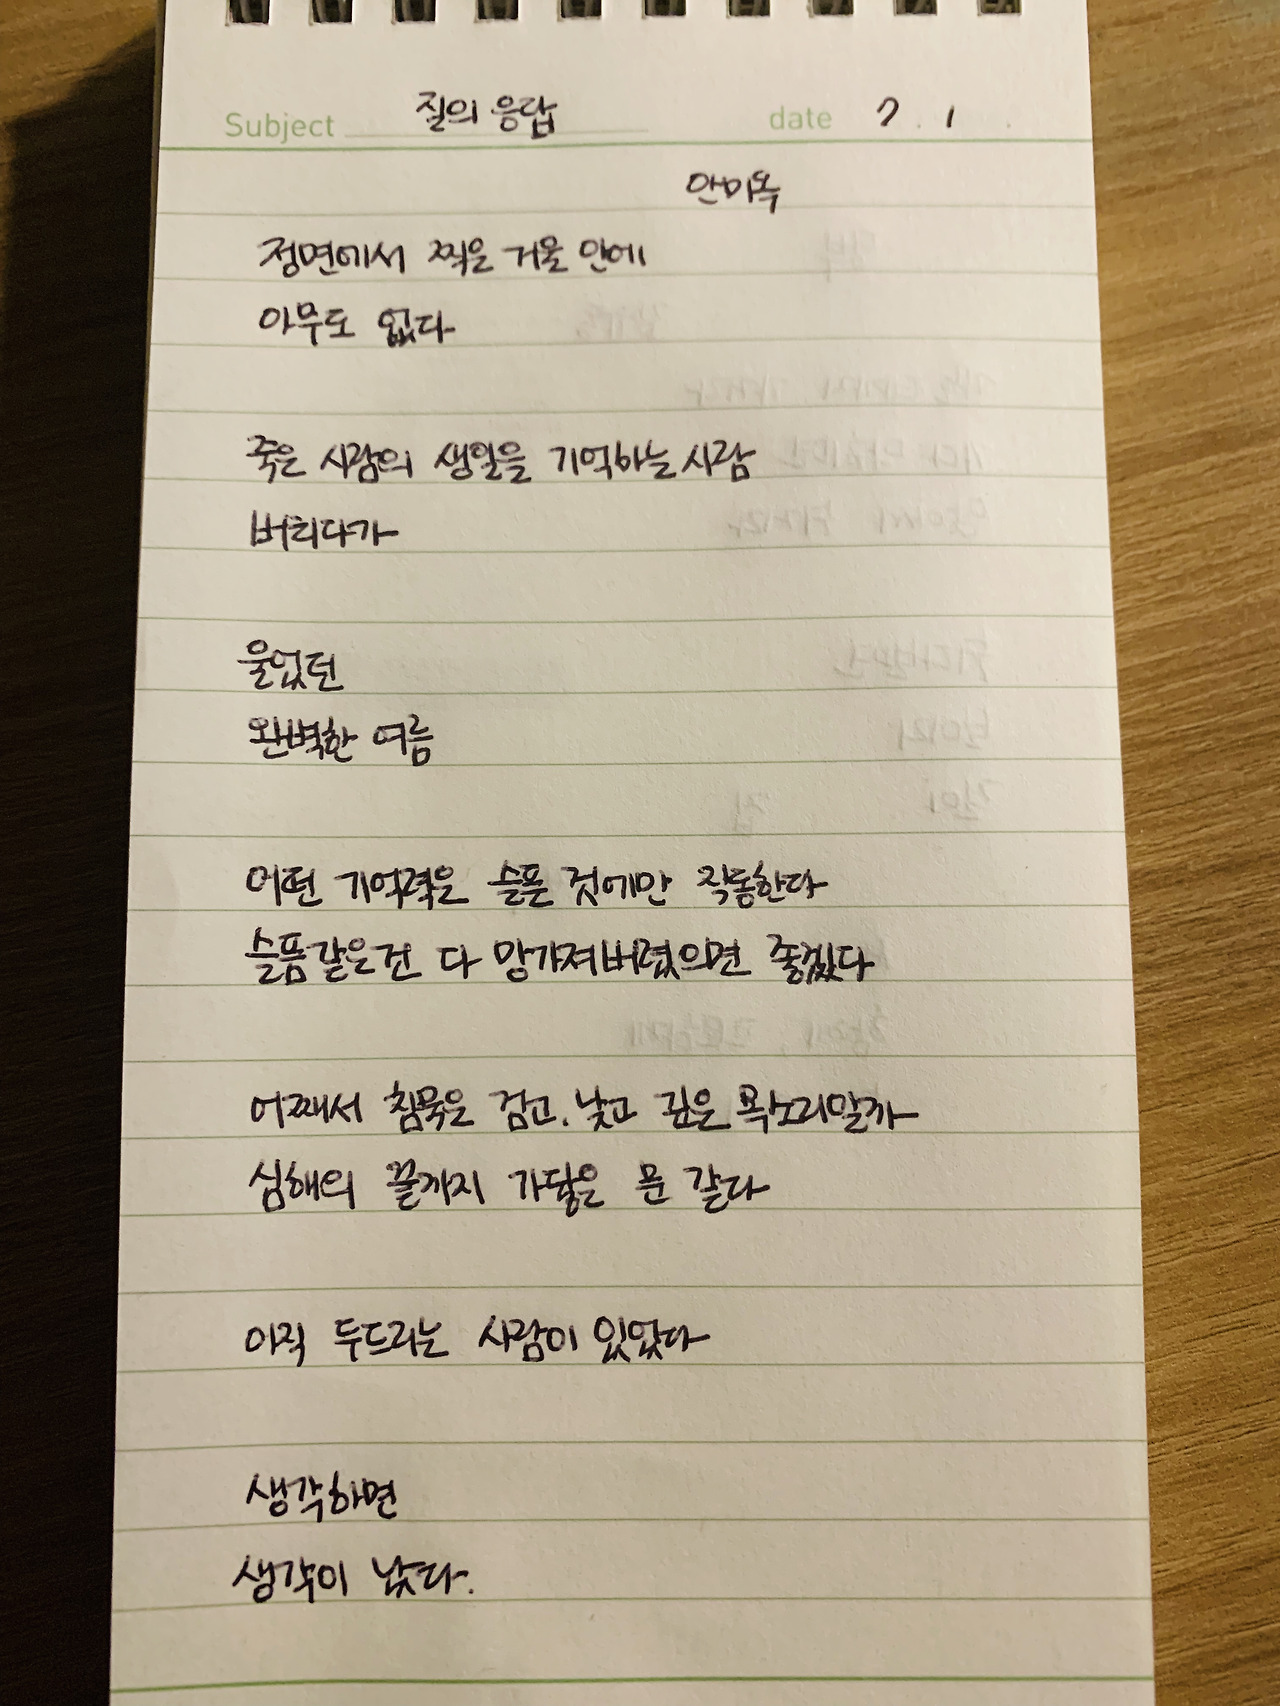 Subject 질의 응답 date 7 . 1 .
안미옥
정면에서 찍은 거울 안에
아무도 없다
죽은 사람의 생일을 기억하는 사람
버티다가
울었던
완벽한 여름
어떤 기억력은 슬픈 것에만 작동한다
슬픔같은건 다 망가져버렸으면 좋겠다
어째서 침묵은 검고, 낮고 깊은 목소리일까
심해의 끝까지 가닿은 문 같다
아직 두드리는 사람이 있었다
생각하면
생각이 났다.